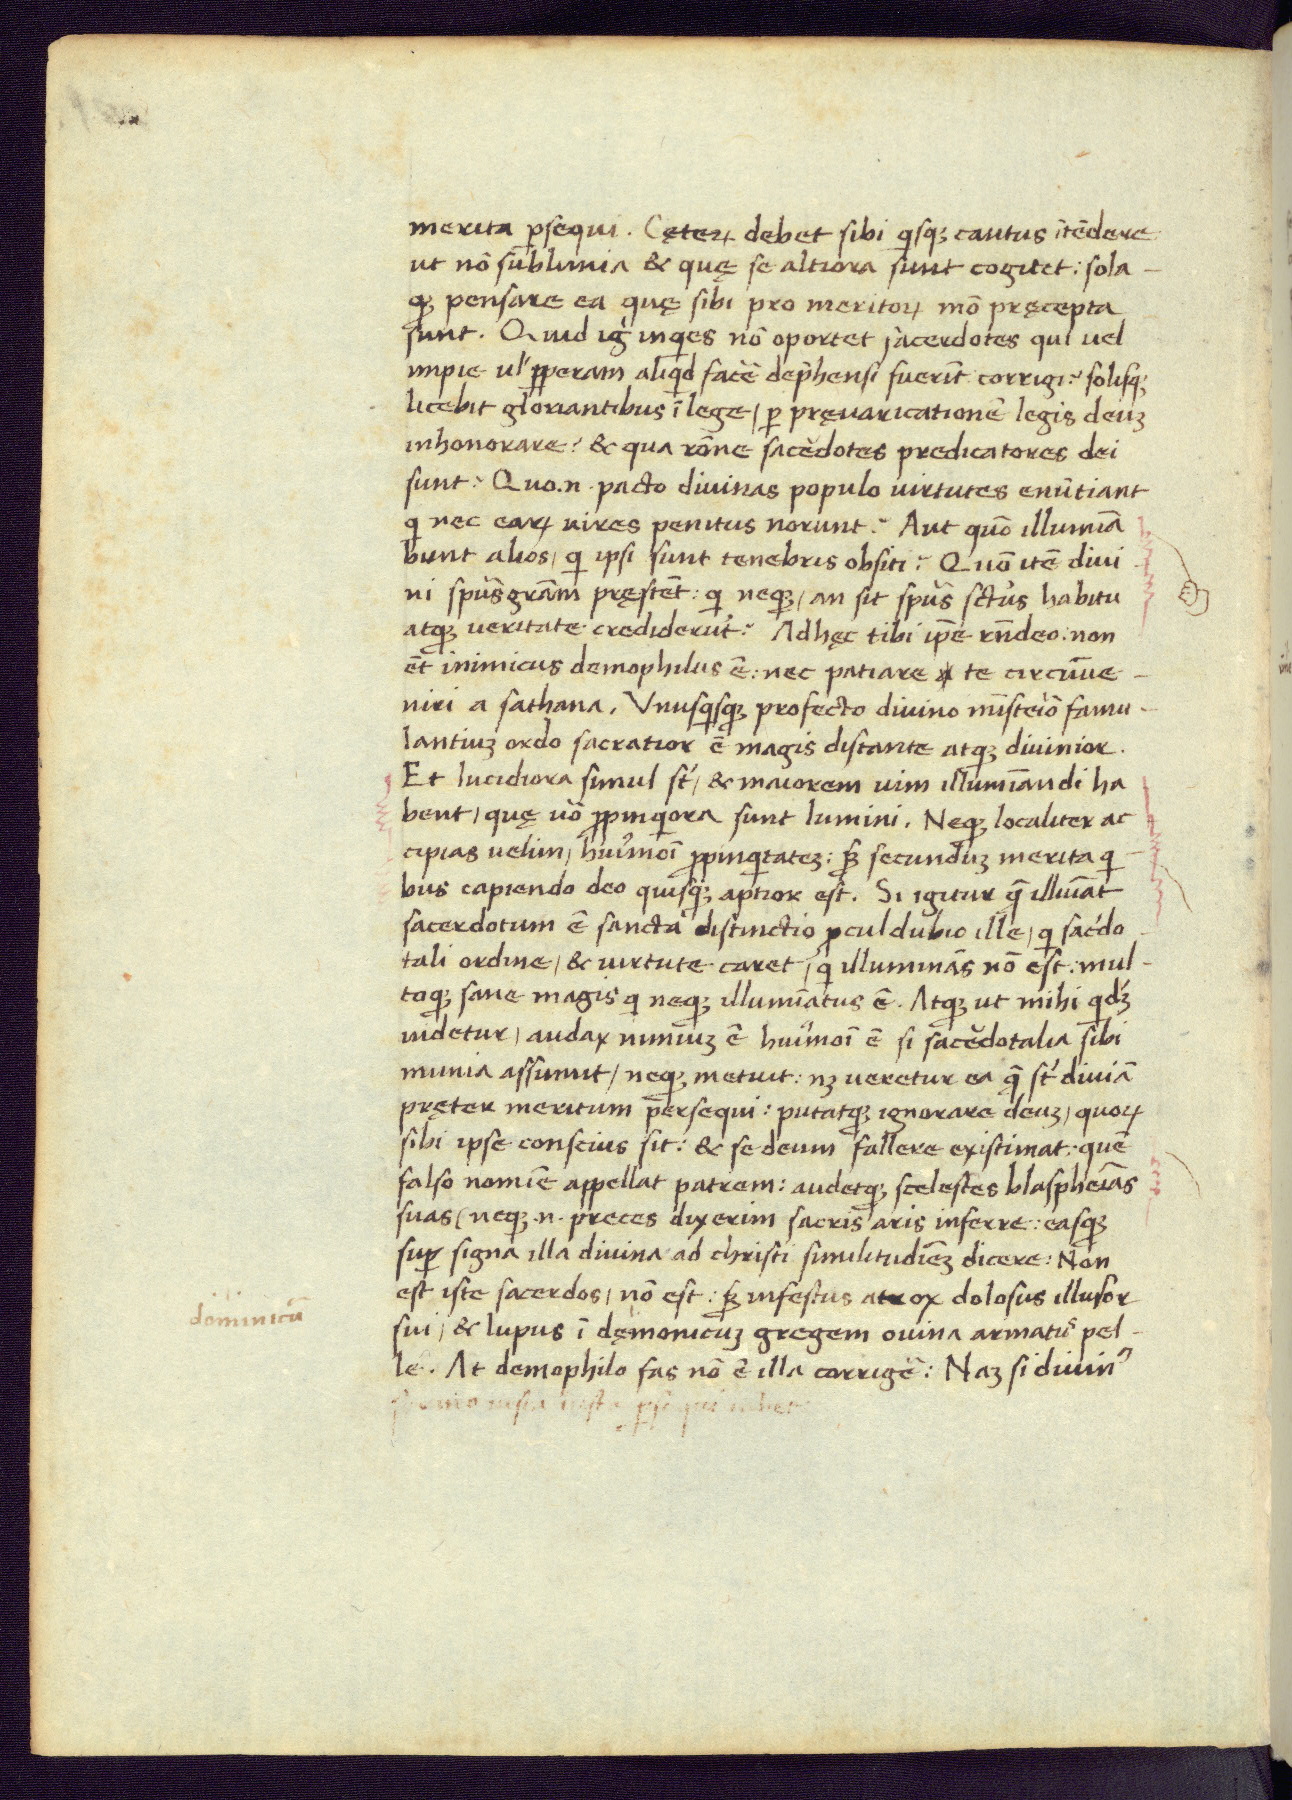 merita ꝑsequi. Cęteꝝ debet sibi qͥsqꝫ cautus ītēdere
ut nō sublimia & quę se altiora sunt cogitet: sola -
qꝫ pensare ea quę sibi pro meritoꝝ mō pręcepta
sunt. Quid igͥ inqͥes nō oportet sacerdotes qui uel
impie ul' ꝑperam aliqͥd facē dep̄hensi fuerīt corrigi? solisqꝫ
licebit gloriantibus ī lege / ꝑ pręuaricationē legis deuꝫ
inhonorare? & qua rōne sacēdotes predicatores dei
sunt? Quo .n. pacto diuinas populo uirtutes enūtiant
qͥ nec eaꝝ uires penitus norunt? Aut quō illumiā
bunt alios / qͥ ipsi sunt tenebris obsiti? Quō itē diui -
ni spūs grām pręstēt: qͥ neqꝫ / an sit spūs sctūs habitu
atqꝫ ueritate crediderūt? Ad hęc tibi ipē rn̄deo: non
ēt inimicus demophilus ē: nec patiare te circūue -
niri a sathana. Vnusqͥsqꝫ profecto diuino mīsteriō famu -
lantiuꝫ ordo sacratior ē magis distante atqꝫ diuinior.
Et lucidiora simul st̄ / & maiorem uim illumiandi ha
bent / quę uō ꝓpinqͥora sunt lumini. Neqꝫ localiter ac
cipias uelim / huiꝰmōi ꝓpinqͥtateꝫ: sꝫ secunduꝫ merita qͥ -
bus capiendo deo quisqꝫ aptior est. Si igitur q̄ illuīat
sacerdotum ē sancta distinctio ꝓcul dubio ille / qͥ sac̄do -
tali ordine / & uirtute caret / qͥ illuminās nō est: mul -
toqꝫ sane magis qͥ neqꝫ illumīatus ē. Atqꝫ ut mihi qͥdꝫ
uidetur / audax nimiuꝫ ē huiꝰmōi ē si sacēdotalia sibi
munia assumit / neqꝫ metuit: nꝫ ueretur ea q̄ st̄ diuiā
pręter meritum persequi: putatqꝫ ignorare deuꝫ / quoꝝ
sibi ipse conscius sit: & se deum fallere existimat: quē
falso nomīe appellat patrem: audetqꝫ scelestes blasphemīas
suas / neqꝫ .n. preces dixerim sacris aris inferre: easqꝫ
suꝑ signa illa diuina ad christi similitudīeꝫ dicere: Non
est iste sacerdos / nō est: sꝫ infestus atrox dolosus illusor
sui / & lupus ī dęmonicuꝫ gregem ouina armatꝰ pel -
le. At demophilo fas nō ē illa corrigē: Naꝫ si diuinꝰ
iusta ꝑsequi iubet
dominicū